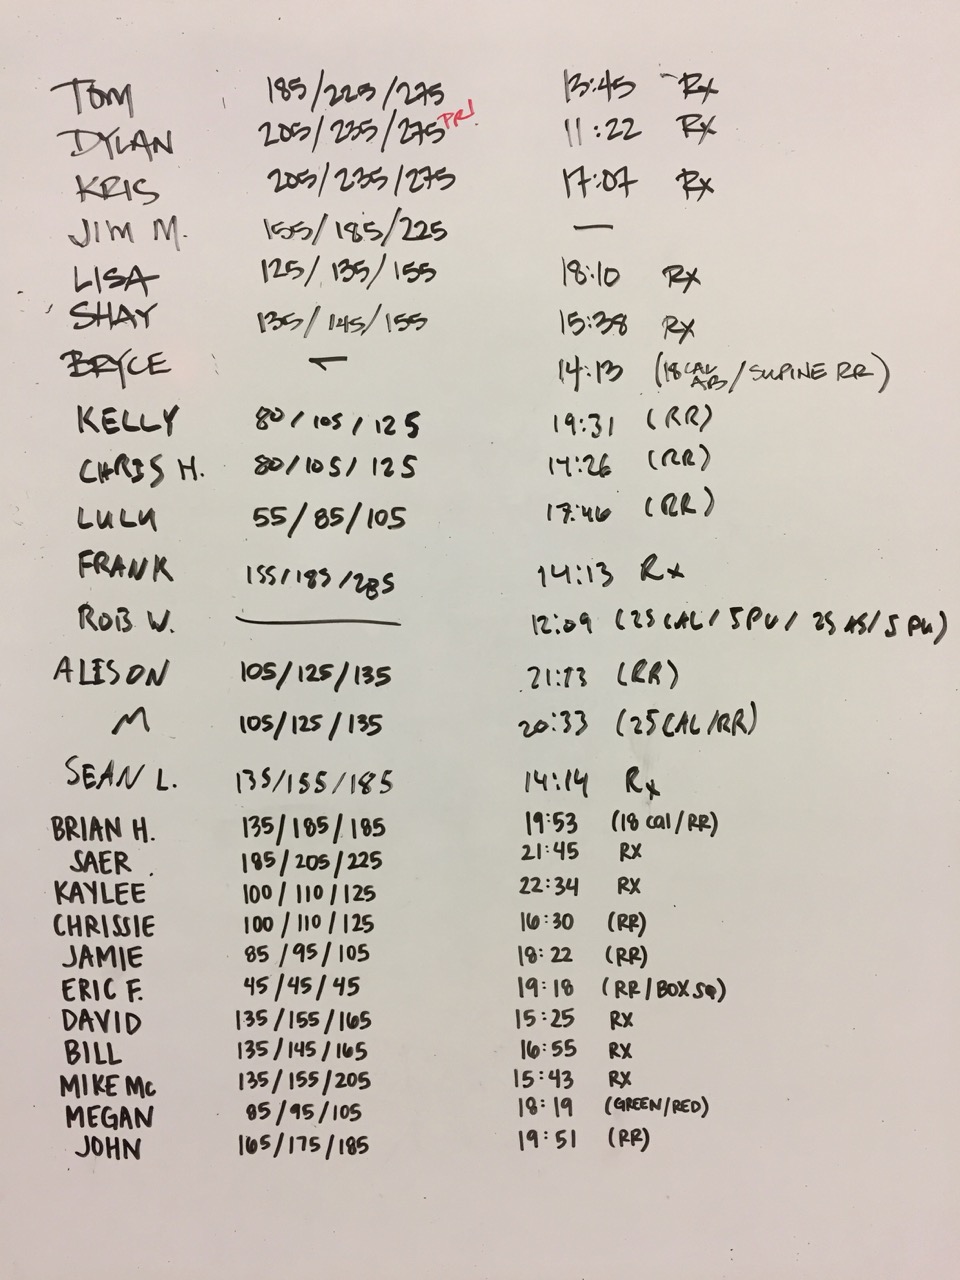 TOM 185/225/275 13:45 Rx
DYLAN 205/235/275 PR! 11:22 Rx
KRIS 205/235/275 17:07 Rx
JIM M. 155/185/225 —
LISA 125/135/155 18:10 Rx
SHAY 135/145/155 15:38 Rx
BRYCE — 14:13 (18 CAL AB/SUPINE RR)
KELLY 80/105/125 19:31 (RR)
CHRIS H. 80/105/125 (RR)
LULU 55/85/105 17:46 (RR)
FRANK 155/185/205 14:13 Rx
ROB W. — 12:09 (25 CAL/5 PU/25 /5 PU)
ALISON 105/125/135 (RR)
M 105/125/135 20:33 (25 CAL/RR)
SEAN L. 135/155/185 14:14 Rx
BRIAN H. 135/185/185 19:53 (18 cal/RR)
SAER 185/205/225 21:45 RX
KAYLEE 100/110/125 22:34 RX
CHRISSIE 100/110/125 16:30 (RR)
JAMIE 85/95/105 18:22 (RR)
ERIC F. 45/45/45 19:18 (RR/BOX SQ)
DAVID 135/155/165 15:25 RX
BILL 135/145/165 16:55 RX
MIKE Mc 135/155/205 15:43 RX
MEGAN 85/95/105 18:19 (GREEN/RED)
JOHN 165/175/185 19:51 (RR)